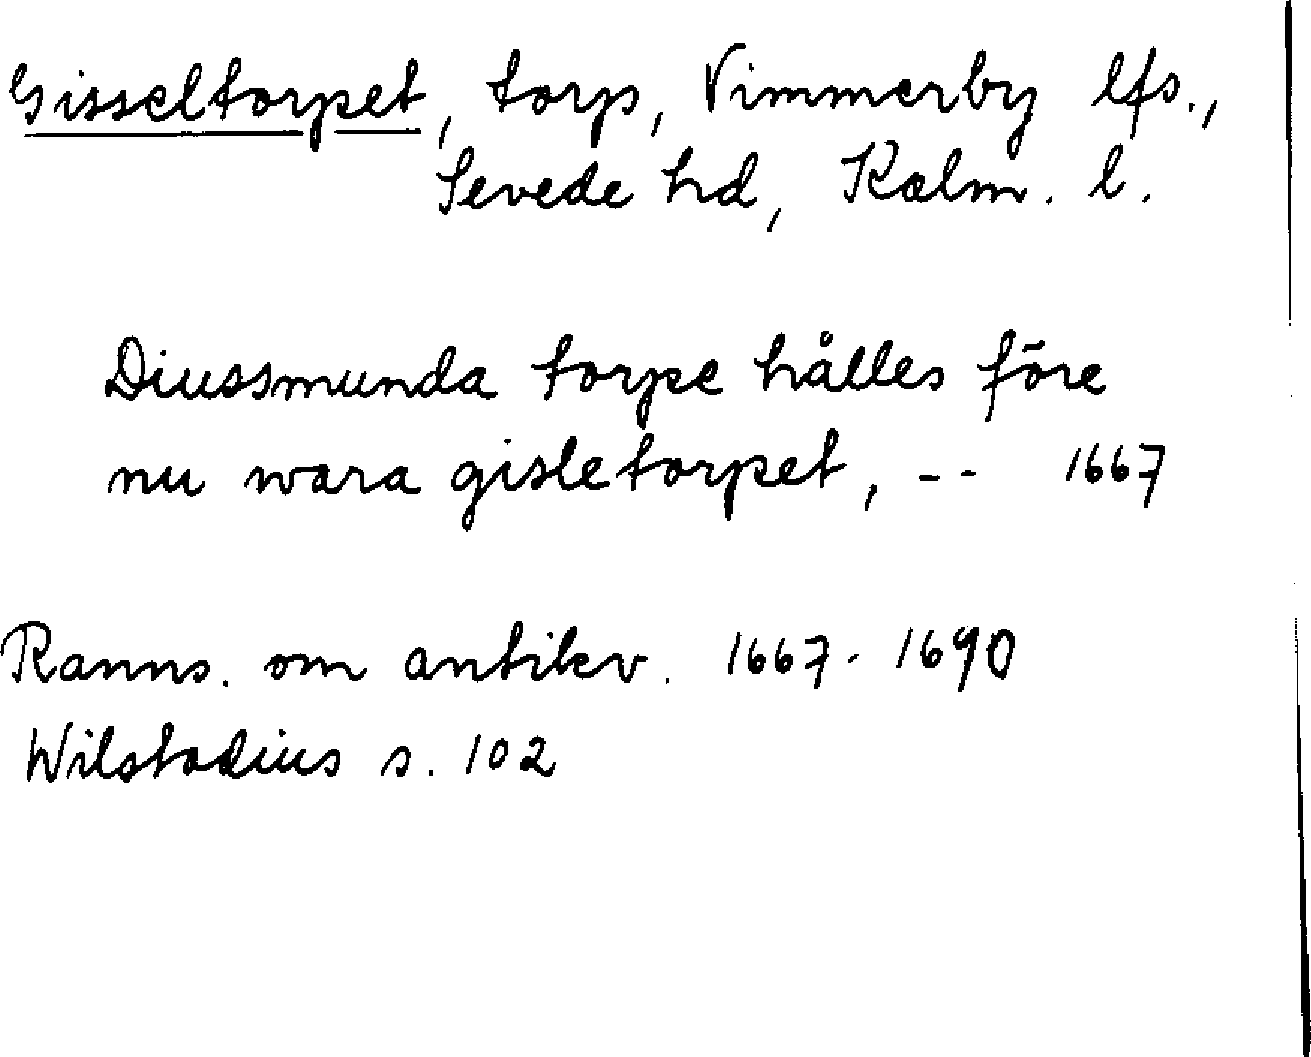 Gisseltorpet, torp, Vimmerby lfs.,
Sevede hd, Kalm. l.
Diussmunda torpe hålles före
nu wara gisletorpet, -- 1667
Ranns. om antikv. 1667-1690
Wilstadius s. 102